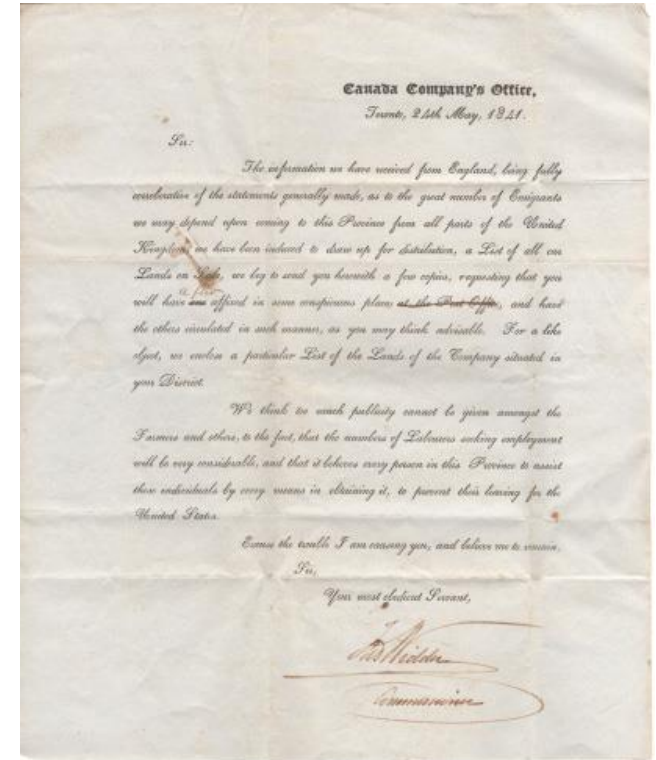 Canada Company's Office,
Toronto, 24th May, 1841.
Sir:
The information we have received from England, being fully
corroborative of the statements generally made, as to the great number of Emigrants
we may depend upon coming to this Province from all parts of the United
Kingdom, we have been induced to draw up for distribution, a List of all our
Lands on Sale, we beg to send you herewith a few copies, requesting that you
a few
will have one affixed in some conspicuous places at the Post Office, and have
the others circulated in such manner, as you may think advisable. For a like
object, we enclose a particular List of the Lands of the Company situated in
your District.
We think too much publicity cannot be given amongst the
Farmers and others, to the fact, that the numbers of Labourers seeking employment
will be very considerable, and that it behoves every person in this Province to assist
these individuals by every means in obtaining it, to prevent their leaving for the
United States.
Excuse the trouble I am causing you, and believe me to remain,
Sir,
Your most obedient Servant,
Widder
Commissioner